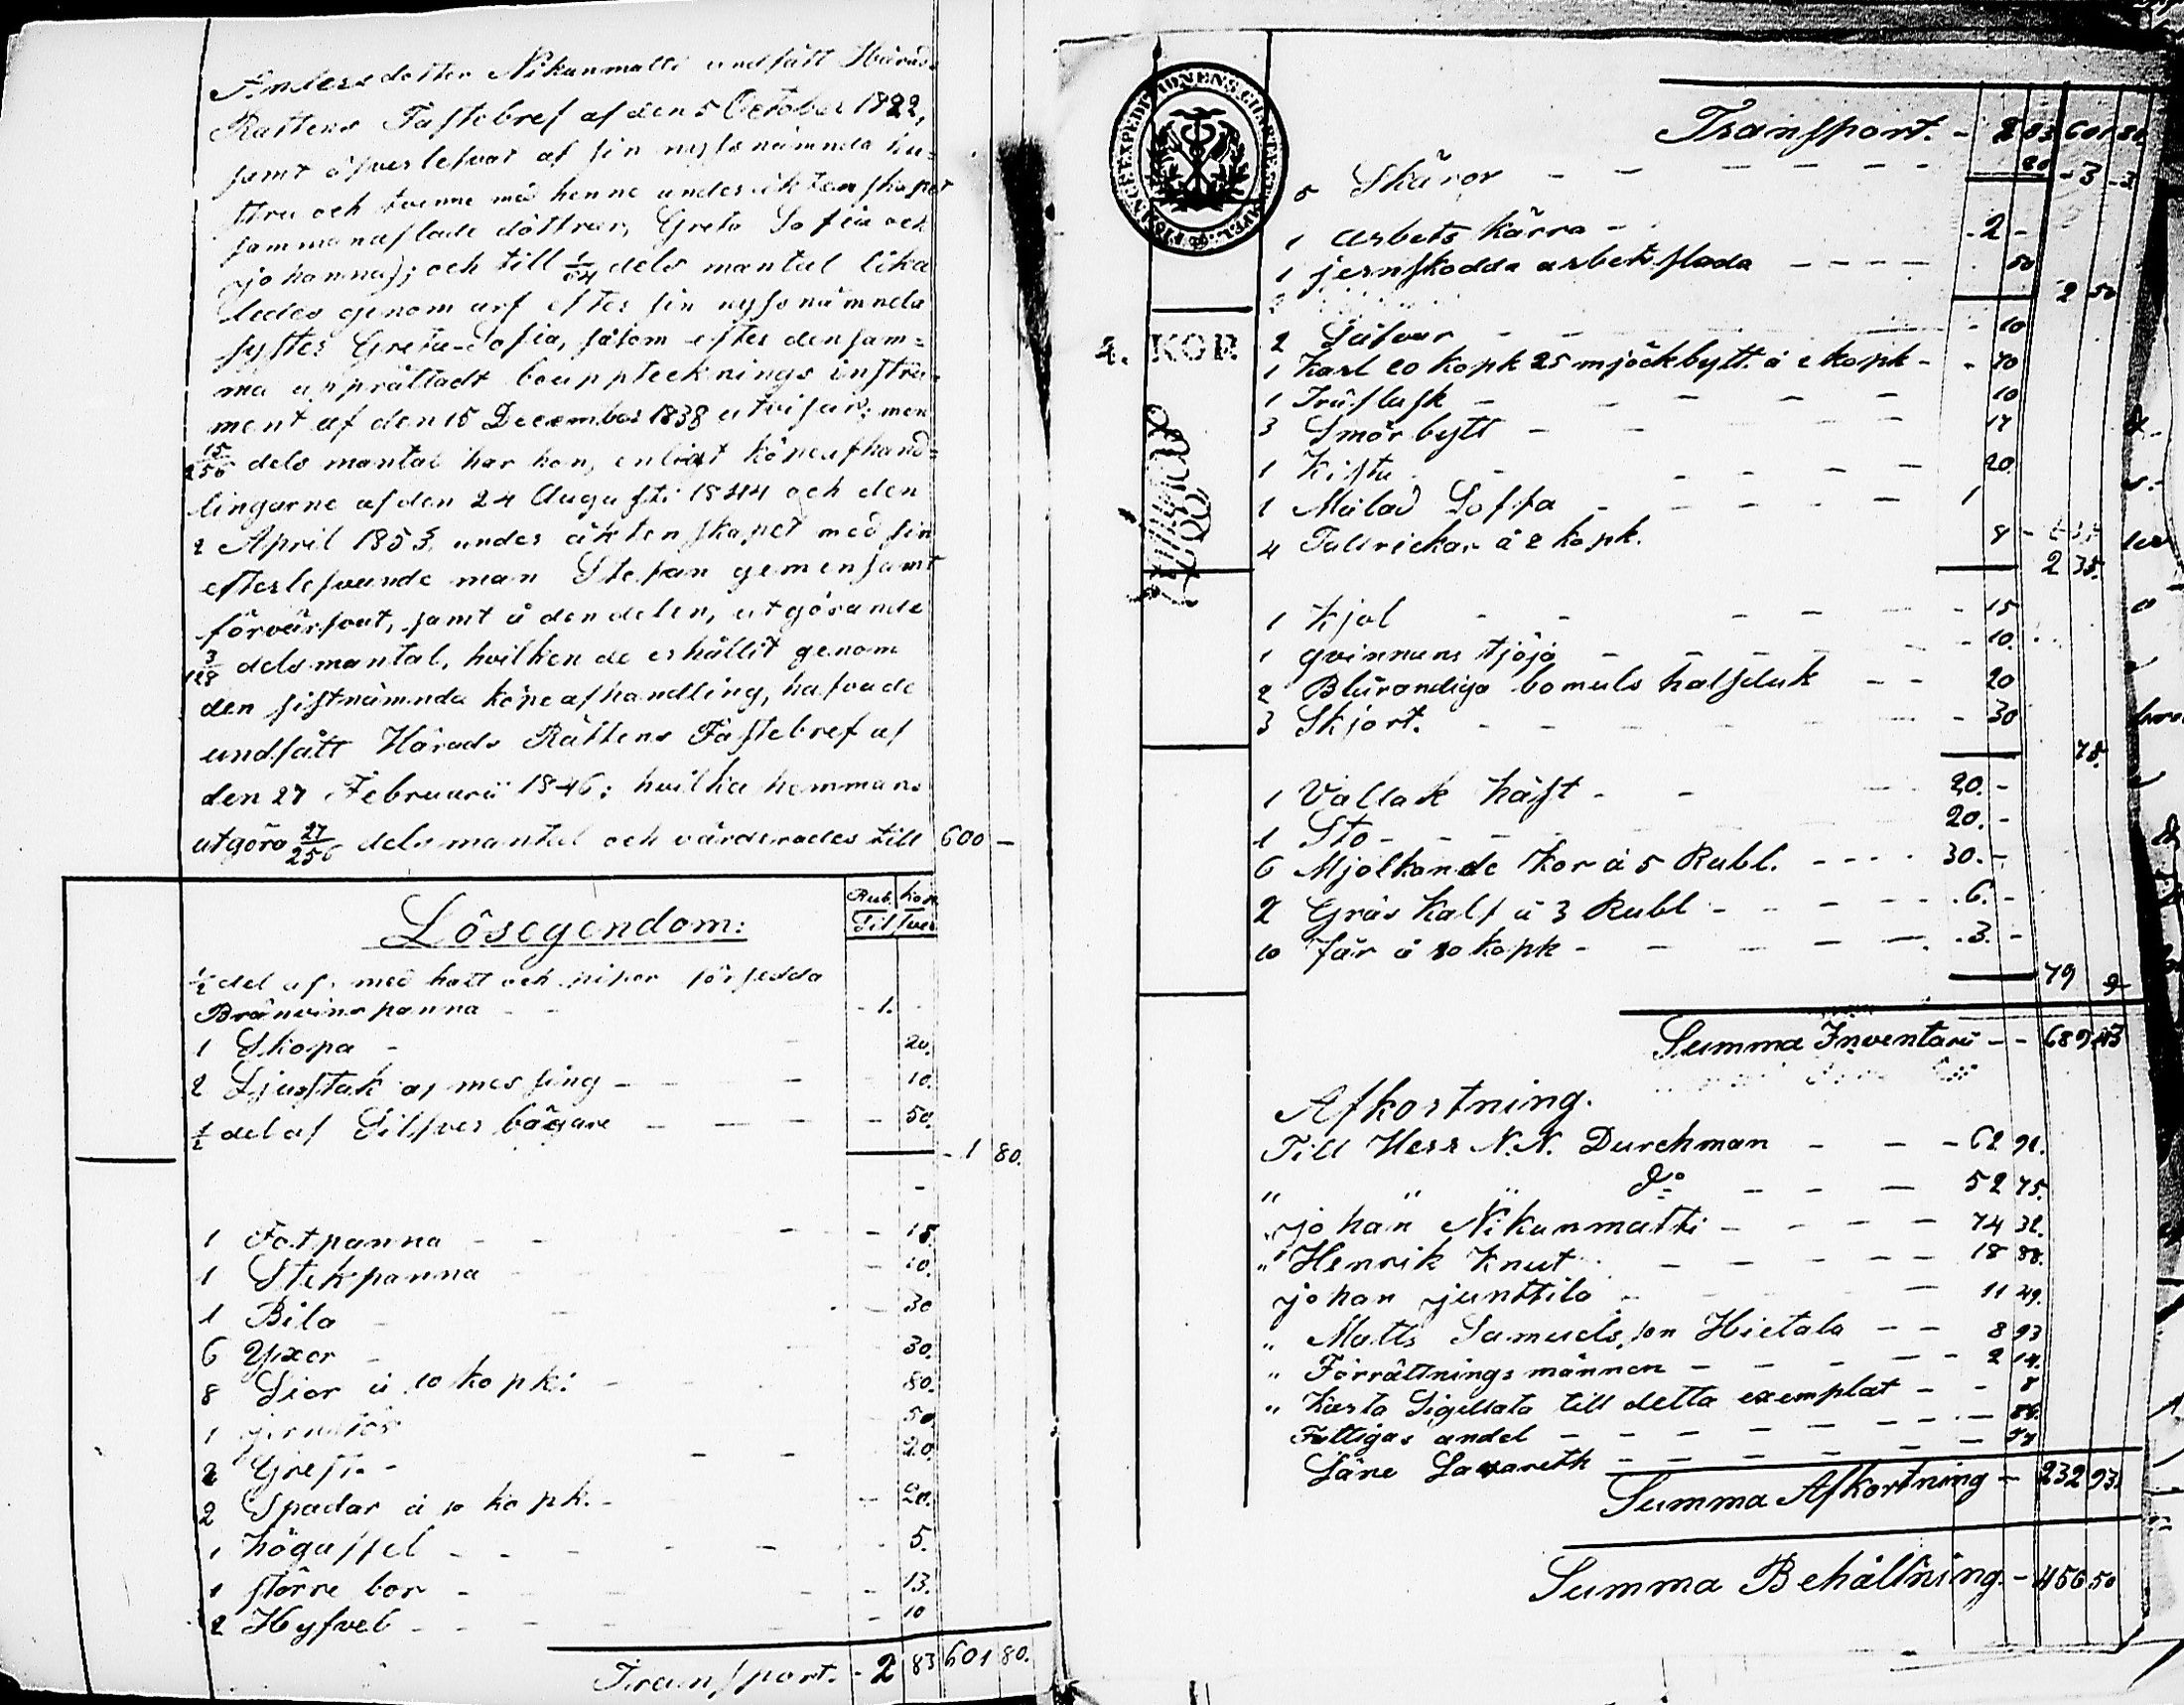 Andersdotter Nikunmatti undfått Härads
Rättens Fastebref af den 5 October 1822,
samt öfverlefvat af sin nyss nämnda hu=
stru och tvenne med henne under äktenskapet
sammanaflade döttrar, Greta Sofia och
Johanna); och till 1/64 dels mantal lika
ledes genom arf efter sin nyss nämnda
syster Greta-Sofia, såsom efter densam=
ma upprättadt bouppteknings instru=
ment af den 15 December 1838 utvisar; men
15/256 dels mantal har hon, enligt köpeafhand=
lingarne af den 24 Augusti 1844 och den
2 April 1853, under äktenskapet med sin
efterlefvande man Stefan gemensamt
förvärfvat, samt å den delen, utgörande
3/128 dels mantal, hvilken de erhållit genom
den sistnämnda köpeafhandling, hafvade
undfått Härads Rättens Fastebref af
den 27 Februarii 1846; hvilka hemmans
utgöra 27/256 dels mantal och värderades till 600 —
Lösegendom: Rub. kop. Silfver
1/2 del af med hatt och pipor försedda
Bränvins panna - 1. -
1 Skopa - 20.
2 Ljusstak af messing - 10.
1/2 del af Silfver bägare - 50.
- 1 80.
1 Fotpanna - 15.
1 Stekpanna - 10.
1 Bila - 30
6 Yxor - 30.
8 Lior à 10 kopk: - 80.
1 50
2 Grefta - 20.
2 Spadar à 10 kopk. - 20.
1 högaffel - 5.
1 större bor - 13.
2 Hyfvel - 10
Transport. - 2 83 601 80.
CHARTÆ
Transport. - 2 83 601 80.
5 Skäror - 20 - 3 - 3
1 arbets kärra - 2 -
1 jernskodda arbetsslada - 50
2 50
4. KOP.
2 Såfvar - 10
1 Karl 20 kopk 25 mjöckbytt. à 2 kopk - 70
1 Träflask - 10
3 Smörbytt - 17
1 Kista - 20.
1 Målad Soffa - 1
4 Tallrickar à 2 kopk. 8
2 35.
1 Kjol - 15
1 qvinnans tjöjo - 10.
2 Blårandiga bomuls halsduk - 20
3 Skjort. - 30
75.
1 Vallak häst - 20. -
1 Sto - 20. -
6 Mjölkande Kor à 5 Rubl. - 30. -
2 Gräs Kalf à 3 Rubl - 6. -
10 Får à 30 kopk - 3. -
79
Summa Inventari - 689 43
Afkortning.
Till Herr N.N. Durchman - 62 91.
" " " Do - 52 75.
" Johan Nikunmatti - 74 32.
" Henrik Knut - 18 88.
Johan Junttila - 11 29.
" Matts Samuelsson Hietala - 8 93
" Förrättningsmännen - 2 14.
" Karta Sigillata till detta exemplat - 8
Fattigas andel - 86.
Läne Lazareth - 77
Summa Afkortning - 232 93.
Summa Behållning. - 456 50